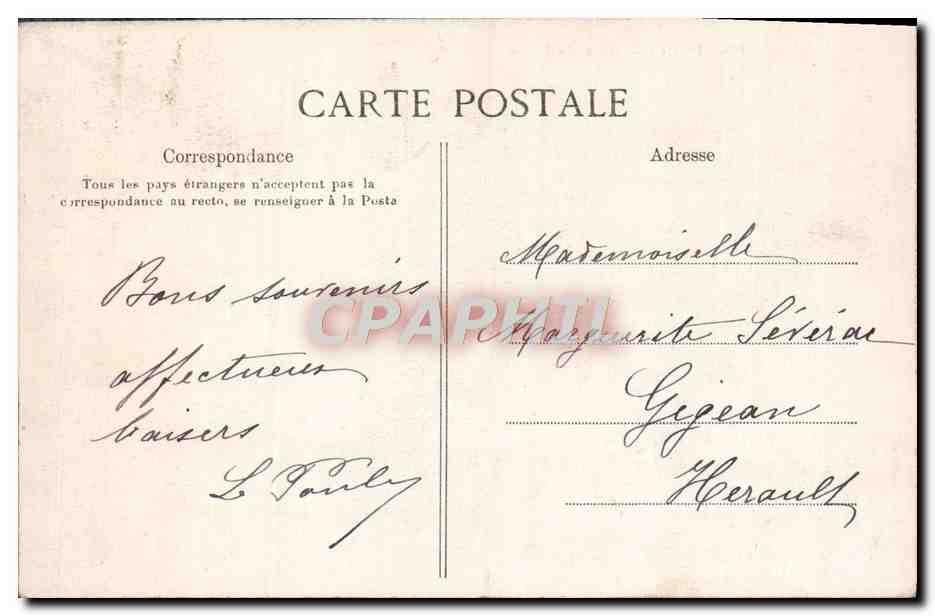 CARTE POSTALE
Correspondance
Tous les pays étrangers n'acceptent pas la
correspondance au recto, se renseigner à la Poste
Bons souvenirs
affectueux
baisers
L
Adresse
Mademoiselle
Marguerite Séverac
Gigean
Herault
CPAPHIL